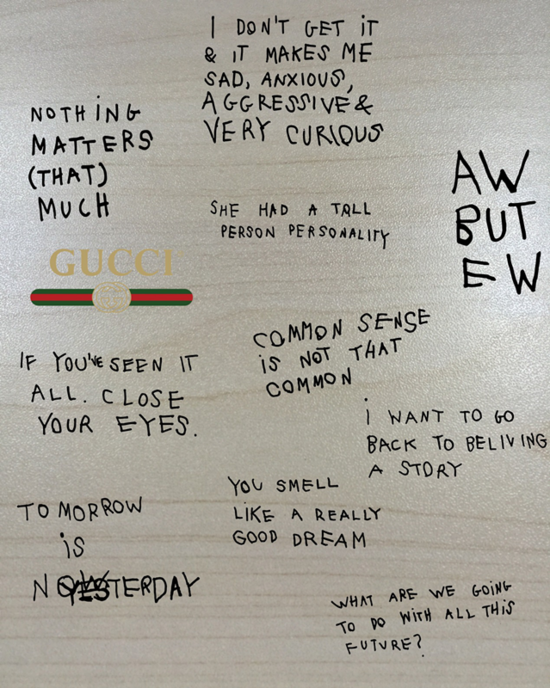 I DON'T GET iT
& iT MAKES ME
SAD, ANXIOUS,
AGGRESSIVE &
VERY CURIOUS
NOTHiNG
MATTERS
(THAT)
MUCH
AW
BUT
EW
SHE HAD A TALL
PERSON PERSONALITY
GUCCI
COMMON SENSE
iS NOT THAT
COMMON
IF YOU'VE SEEN IT
ALL. CLOSE
YOUR EYES.
i WANT TO GO
BACK TO BELIVING
A STORY
YOU SMELL
LIKE A REALLY
GOOD DREAM
TOMORROW
iS
NOW YESTERDAY
WHAT ARE WE GOING
TO DO WITH ALL THiS
FUTURE?